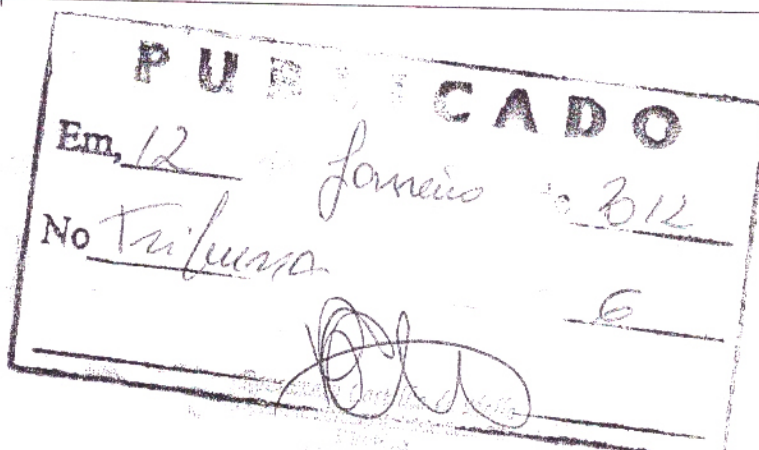 PUBLICADO
Em, 12 Janeiro 2012
No Tribuna 6